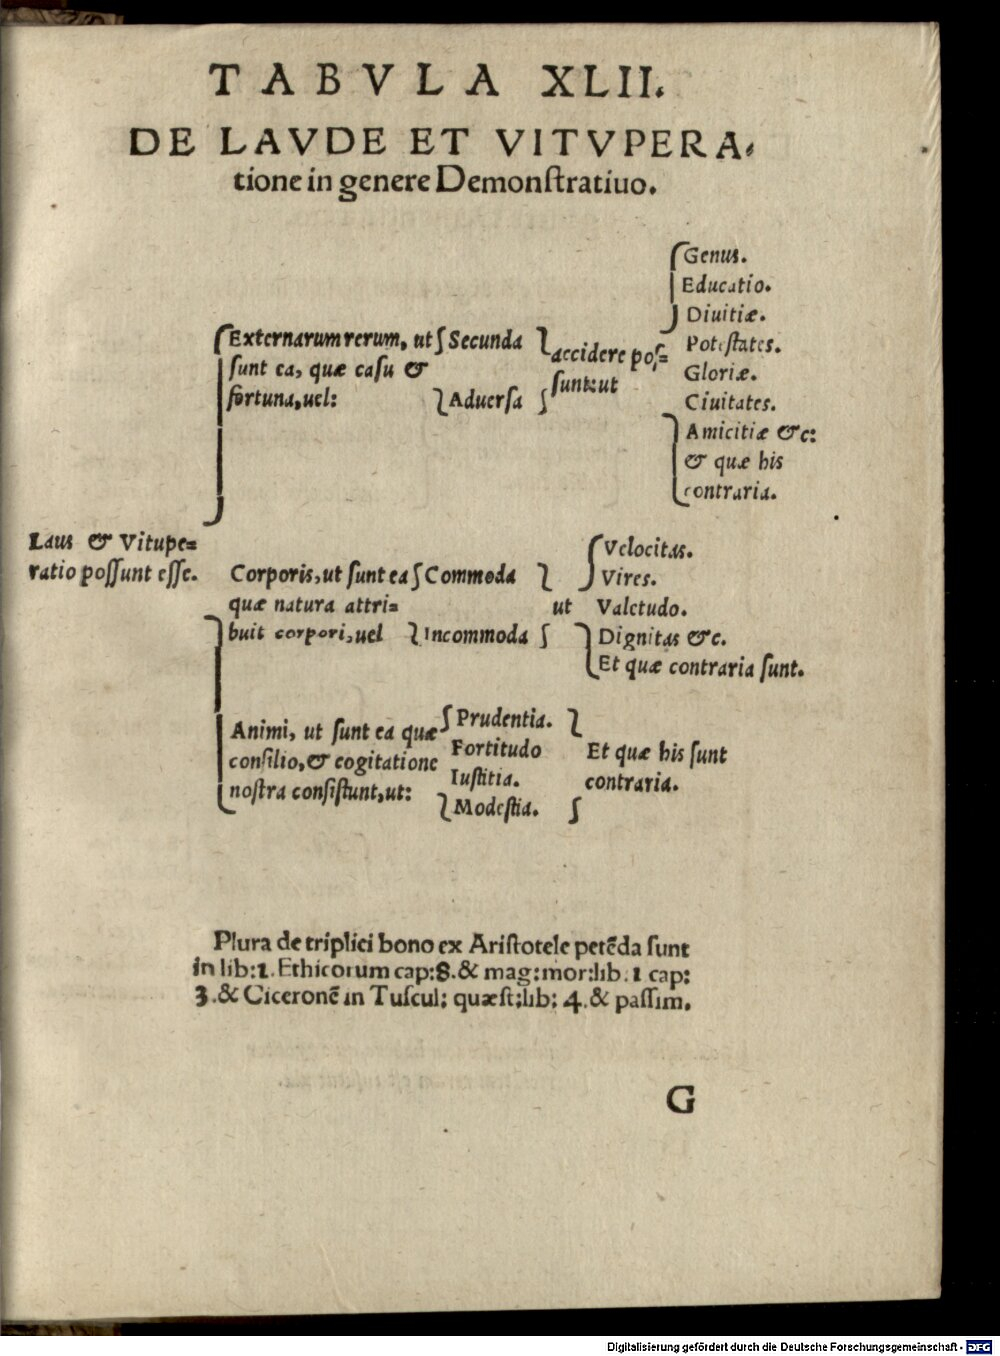 TABVLA XLII.
DE LAVDE ET VITVPERA-
tione in genere Demonſtratiuo.
Genus.
Educatio.
Diuitiæ.
Externarum rerum, ut Secunda accidere poſ= Poteſtates.
ſunt ea, quæ caſu & ſunt:ut Gloriæ.
fortuna, uel: Aduerſa Ciuitates.
Amicitiæ &c:
& quæ his
contraria.
Laus & Vitupe=
ratio poſſunt eſſe.
Velocitas.
Corporis, ut ſunt ea Commoda Vires.
quæ natura attri= ut Valetudo.
buit corpori, uel Incommoda Dignitas &c.
Et quæ contraria ſunt.
Animi, ut ſunt ea quæ Prudentia.
conſilio, & cogitatione Fortitudo Et quæ his ſunt
nostra conſiſtunt, ut: Iuſtitia. contraria.
Modeſtia.
Plura de triplici bono ex Ariſtotele petēda ſunt
in lib:1. Ethicorum cap:8. & mag:mor:lib. 1 cap:
3. & Ciceronē in Tuſcul; quæſt;lib; 4. & paſſim.
G
Digitalisierung gefördert durch die Deutsche Forschungsgemeinschaft - DFG